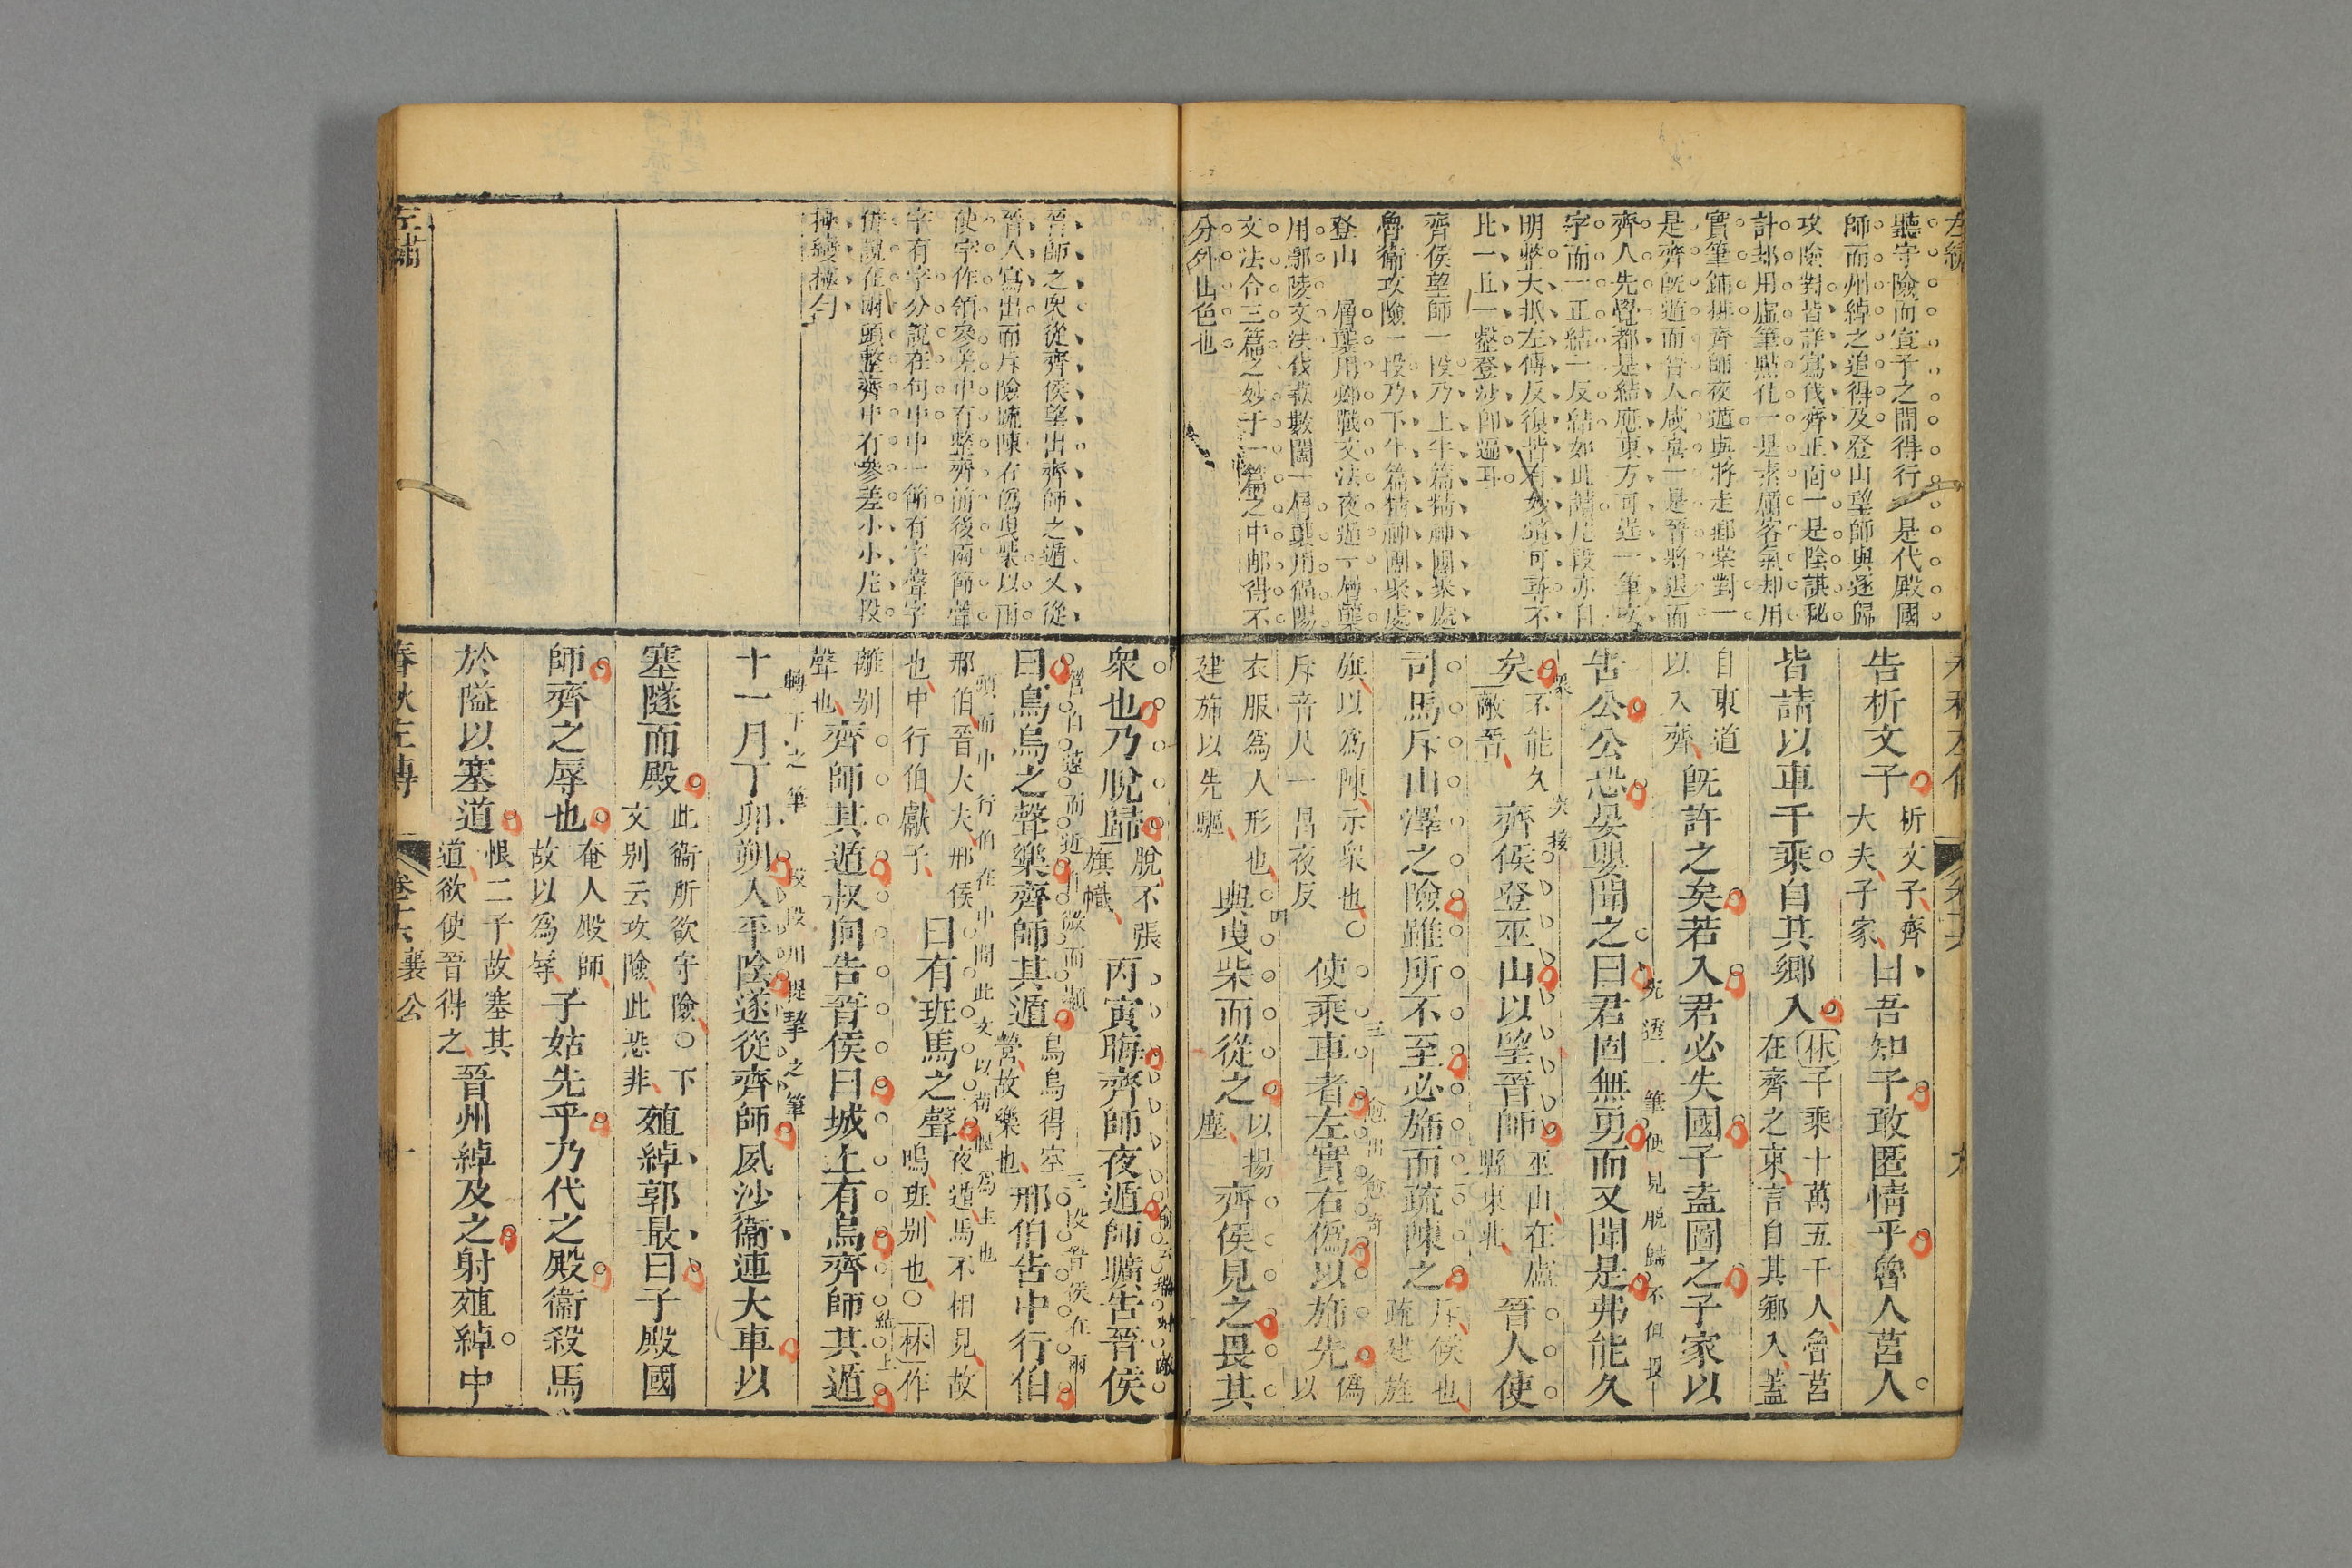 左繡
聽守險而宣子之間得行是代殿國
師而州綽之追得及登山望師與遂歸
攻險對皆詳寫伐齊正面一是陰謀秘
計却用虛筆點化一是素厲客氣却用
實筆鋪排齊師夜遁與將走郵棠對一
是齊既遁而晉人咸寫一是晉將退而
齊人先覺都是結應東方可造一筆
字而一正結一反結如此諸尼段亦自
明整大抵左傳反復皆有妙境可尋不
比一丘一壑登涉卽遍耳
齊侯望師一段乃上半篇精神團聚處
魯衞攻險一段乃下半篇精神團聚處
登山 層疊用鄢戰文法夜遁一層疊
用鄢陵文法伐萩數閤一層疊用偪陽
文法合三篇之妙于一篇之中那得不
分外出色也
告析文子析文子齊大夫子家曰吾知子敢匿情乎魯人莒人
皆請以車千乘自其鄉入林千乘十萬五千人魯莒在齊之東言自其鄉入蓋
自東道以入齊既許之矣若入君必失國子盍圖之子家以
告公公恐晏嬰聞之曰君固無勇而又聞是弗能久
先透一筆便見脫歸不但
矣不能久敵晉齊侯登巫山以望晉師巫山在盧縣東北晉人使
突接
司馬斥山澤之險雖所不至必斾而疏陳之斥候也疏建旌
旗以爲陳示衆也斥音尺一昌夜反使乘車者左實右僞以斾先僞以
衣服爲人形也建斾以先驅輿曳柴而從之以揚塵齊侯見之畏其
衆也乃脫歸脫不張旗幟丙寅晦齊師夜遁師曠告晉侯
曰鳥烏之聲樂齊師其遁鳥烏得空營故樂也邢伯告中行伯
三段晉侯在兩
邢伯晉大夫邢侯也中行伯獻子曰有班馬之聲夜遁馬不相見故鳴班別也林作
頭而中行伯在中間此文以荀偃爲主也
離別聲也齊師其遁叔向告晉侯曰城上有烏齊師其遁
十一月丁卯朔入平陰遂從齊師夙沙衞連大車以
轉下之筆
塞隧而殿此衞所欲守險下文別云攻險此恐非殖綽郭最曰子殿國
師齊之辱也奄人殿師故以爲辱子姑先乎乃代之殿衞殺馬
於隘以塞道恨二子故塞其道欲使晉得之晉州綽及之射殖綽中
晉師之衆從齊侯望出齊師之遁又從
晉人寫出而斥險疏陳右僞曳柴以兩
使字作領參差中有整齊前後兩簡聲
字有字分說在句中中一節有字聲字
併說在兩頭整齊中有參差小小片段
極變極勻
左繡
春秋左傳 卷十六 襄公